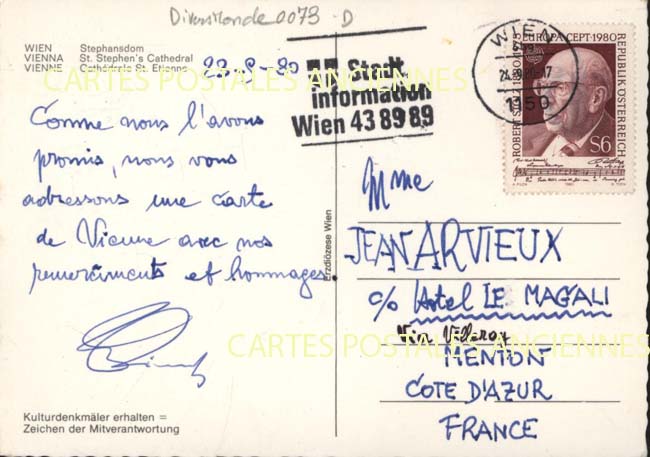 Diversmonde 0073 - D
WIEN Stephansdom
VIENNA St. Stephen's Cathedral
VIENNE Cathédrale St. Etienne
CARTES POSTALES ANCIENNES
Stadt
information
Wien 43 89 89
WIEN
1150
EUROPA CEPT 1980
REPUBLIK ÖSTERREICH
ROBERT STOLZ
S6
Comme nous l'avons
promis, nous vous
adressons une carte
de Vienne avec nos
remerciments et hommages.
Erzdiözese Wien
Mme
JEAN ARVIEUX
c/o Hotel LE MAGALI
Villarey
MENTON
COTE D'AZUR
FRANCE
CARTES POSTALES ANCIENNES
Kulturdenkmäler erhalten =
Zeichen der Mitverantwortung